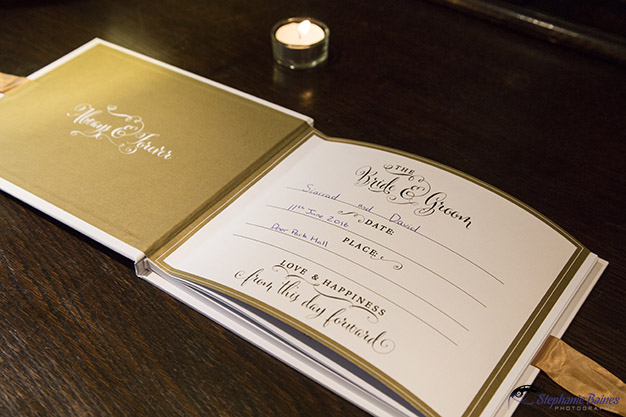 Always & Forever
THE
Bride & Groom
and David
DATE:
11th June 2016
PLACE:
Deer Park Hall
LOVE & HAPPINESS
from this day forward
Stephanie Baines
PHOTOGRAPHY